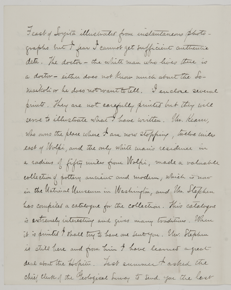 Feast of Loyete illustrated from instantaneous photo-
graphs but I fear I cannot get sufficient authentic
data. The doctor - the white man who lives there is
a doctor - either does not know much about the
or he does not want to tell. I enclose several
prints. They are not carefully printed but they will
serve to illustrate what I have written. Mr. Keam,
who owns the place where I am now stopping, miles
east of Wolpi, and the only white man's residence in
a radius of fifty miles from Wolpi, made a valuable
collection of pottery ancient and modern, which is now
in the National Museum in Washington, and Mr. Stephen
has compiled a catalogue for the collection. This catalogue
is extremely interesting and gives many traditions. When
it is printed I shall try to have one sent you. Mr. Stephen
is still here and from him I have learned a great
deal about the Hopis. Last summer I asked the
Chief Clerk of the Geological Survey to send you the last